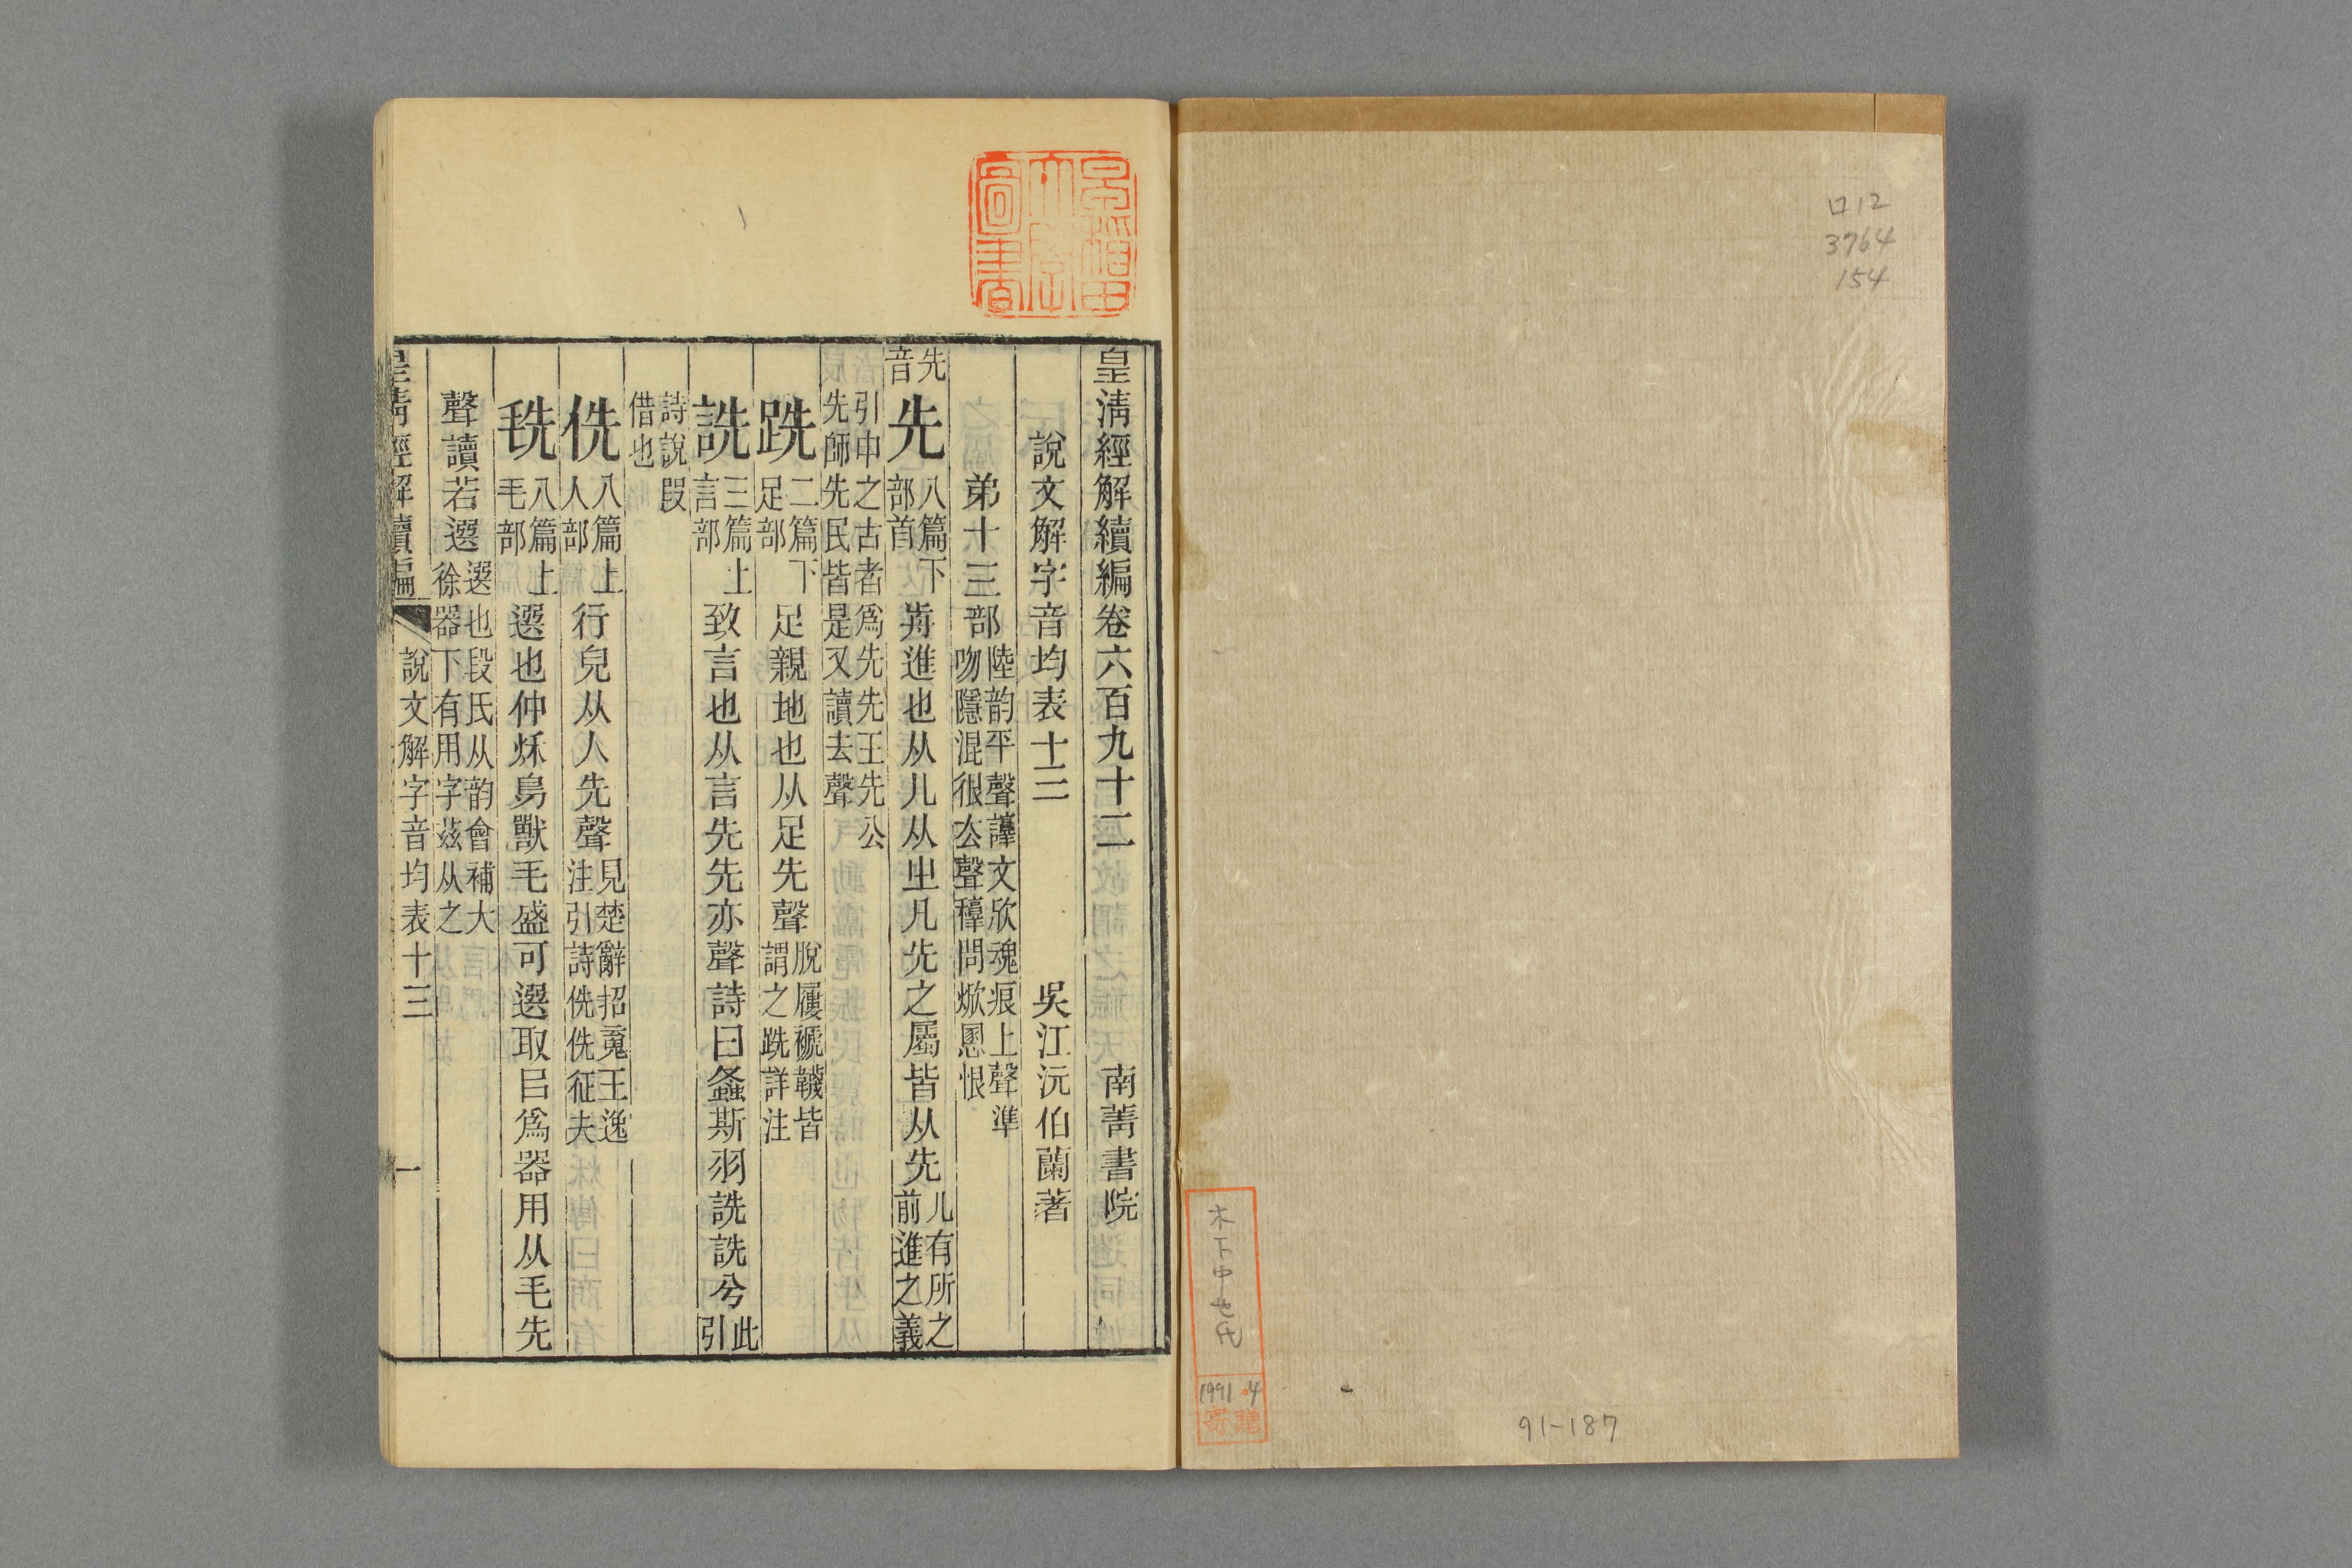 ロ12
3764
154
木下中也氏
1991.4
寄贈
91-187
早稲田大學圖書
皇清經解續編卷六百九十二 南菁書院
說文解字音均表十三 吳江沅伯蘭著
弟十三部 陸韵平聲諄文欣魂痕上聲準
吻隱混很去聲稕問焮慁恨
先音 先 八篇下部首 歬進也从儿从㞢凡先之屬皆从先 儿有所之前進之義
引申之古者爲先先王先公
先師先民皆是又讀去聲
跣 二篇下足部 足親地也从足先聲 脫屨襪韤皆謂之跣詳注
詵 三篇上言部 致言也从言先先亦聲詩曰螽斯羽詵詵兮 此引
詩說叚借也
侁 八篇上人部 行皃从人先聲 見楚辭招䰟王逸注引詩侁侁征夫
毨 八篇上毛部 選也仲秌鳥獸毛盛可選取㠯爲器用从毛先
聲讀若選 選也段氏从韵會補大
徐器下有用字茲从之
皇清經解續編 說文解字音均表十三 一